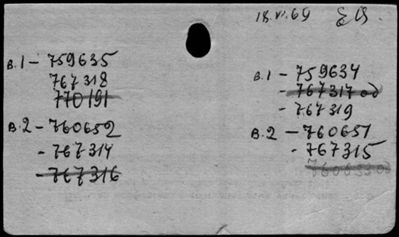 18.VI.69
B.1 - 759635
767318
770191
B.2 - 760652
- 767314
- 767316
B.1 - 759634
- 767317
- 767319
B.2 - 760651
- 767315